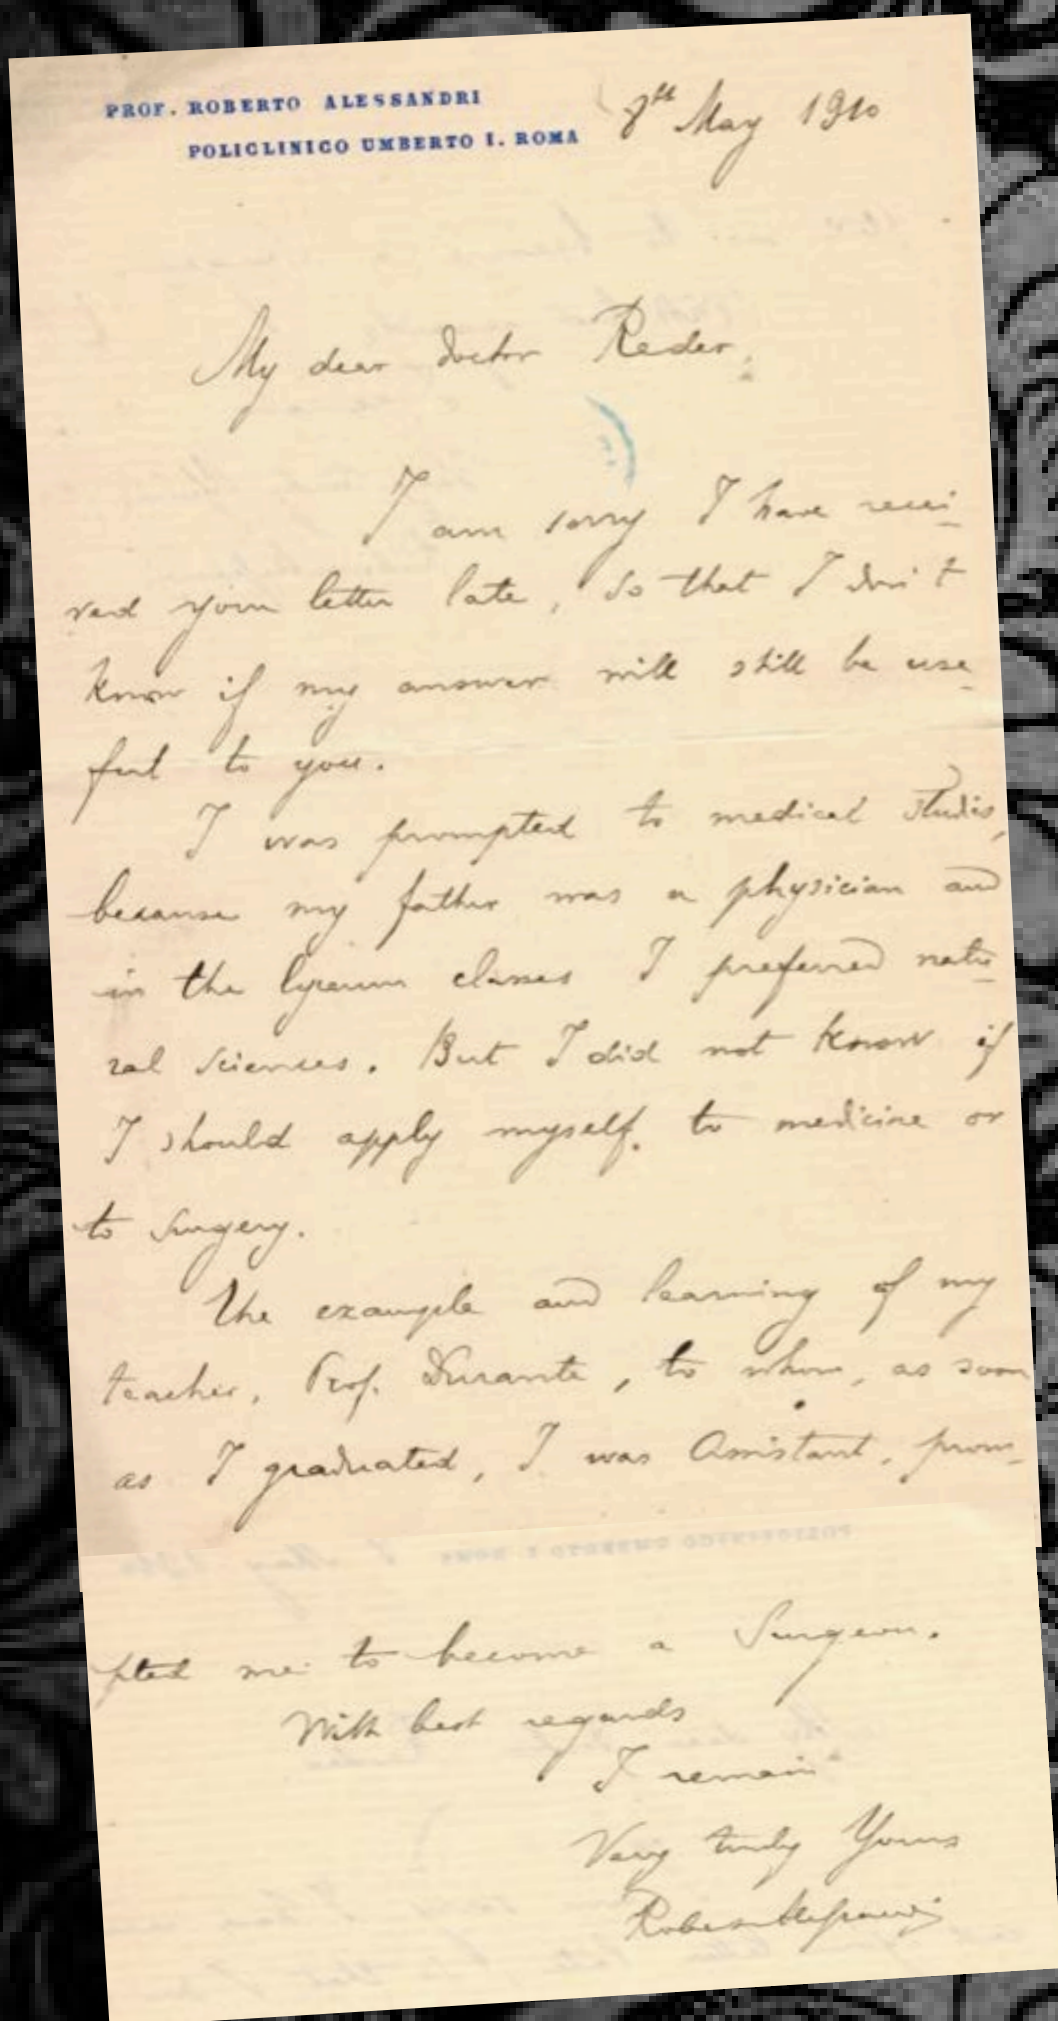 PROF. ROBERTO ALESSANDRI
POLICLINICO UMBERTO I. ROMA
8th May 1910
My dear doctor Reder,
I am sorry I have recei-
ved your letter late, so that I don't
know if my answer will still be use-
ful to you.
I was prompted to medical studies,
because my father was a physician and
in the lyceum classes I preferred natu-
ral sciences. But I did not know if
I should apply myself to medicine or
to surgery.
The example and learning of my
teacher, Prof. Durante, to whom, as soon
as I graduated, I was Assistant, prom-
pted me to become a Surgeon.
With best regards
I remain
Very truly Yours
Roberto Alessandri
POLICLINICO UMBERTO I. ROMA 8th May 1910